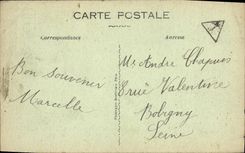 CARTE POSTALE
Correspondance
Adresse
Bon Souvenir
Marcelle
Mr Andre Chapuis
rue Valentine
Bobigny
Seine